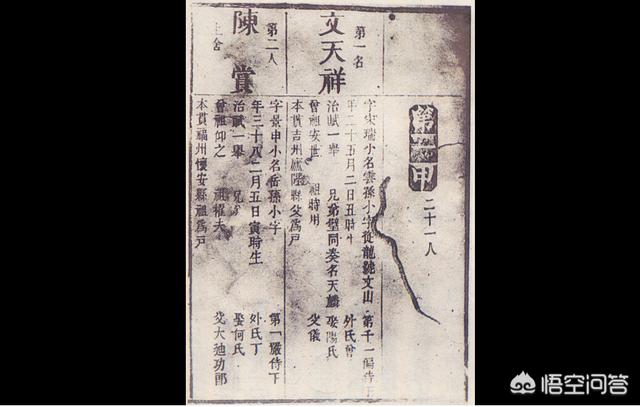 第一甲 二十一人
第一名
文天祥
字宋瑞小名雲孫小字從龍號文山 第千一偏侍下
年二十五月二日丑時生 外氏曾
治賦一舉 兄弟 同奏名天麟 娶歐陽氏
曾祖安世 祖時用 父儀
本貫吉州廬陵縣父爲戶
第二人
陳賞
上舍
字景申小名岳孫小字 第一嚴侍下
年三十八二月五日寅時生 外氏丁
治賦一舉 兄 娶何氏
曾祖仰之 祖權夫 父大 迪功郎
本貫福州懷安縣祖爲戶
悟空问答